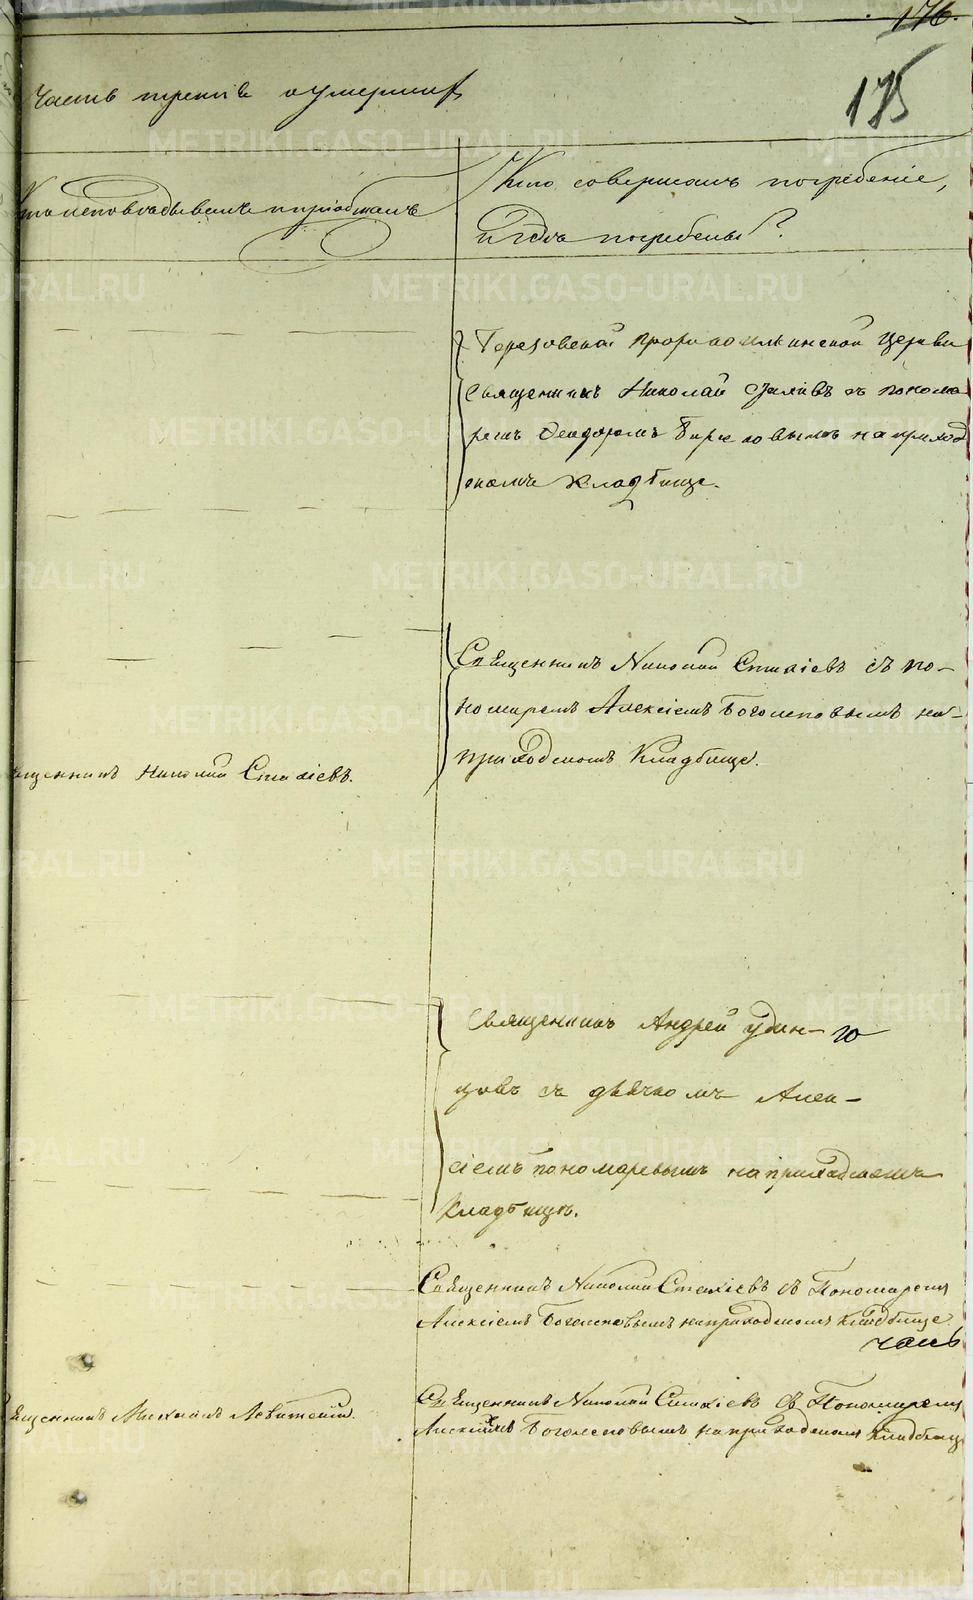 176.
175
Часть третія о умершихъ
Кто исповѣдывалъ и пріобщалъ
Кто совершалъ погребеніе,
и гдѣ погребены?
Березовской Пророкоильинской церкви
священникъ Николай съ понома
ремъ Феодоромъ на приход
скомъ кладбище.
Священникъ Николай Стахіевъ съ по-
номаремъ Алексіемъ Боголеповымъ на
приходскомъ Кладбище.
щенникъ Николай Стахіевъ.
Священникъ Андрей Удин-
цовъ съ дьячкомъ Алек-
сіемъ Пономаревымъ на приходскомъ
Кладбище.
Священникъ Николай Стахіевъ съ Пономаремъ
Алексіемъ Боголеповымъ на приходскомъ Кладбище.
часъ
щенникъ Михаилъ Левитскій.
Священникъ Николай Стахіевъ съ Пономаремъ
Алексіемъ Боголеповымъ на приходскомъ Кладбище
METRIKI.GASO-URAL.RU